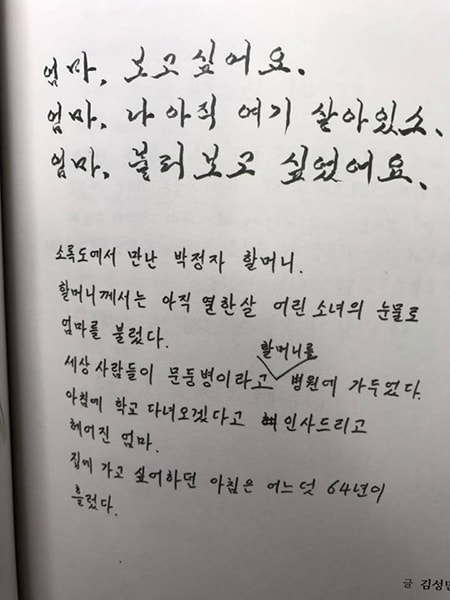 엄마, 보고싶어요.
엄마, 나 아직 여기 살아있소.
엄마, 불러보고 싶었어요.
소록도에서 만난 박정자 할머니.
할머니께서는 아직 열한살 어린 소녀의 눈물로
엄마를 불렀다.
할머니를
세상 사람들이 문둥병이라고 병원에 가두었다.
아침에 학교 다녀오겠다고 인사드리고
헤어진 엄마.
집에 가고 싶어하던 아침은 어느덧 64년이
흘렀다.
글 김성민